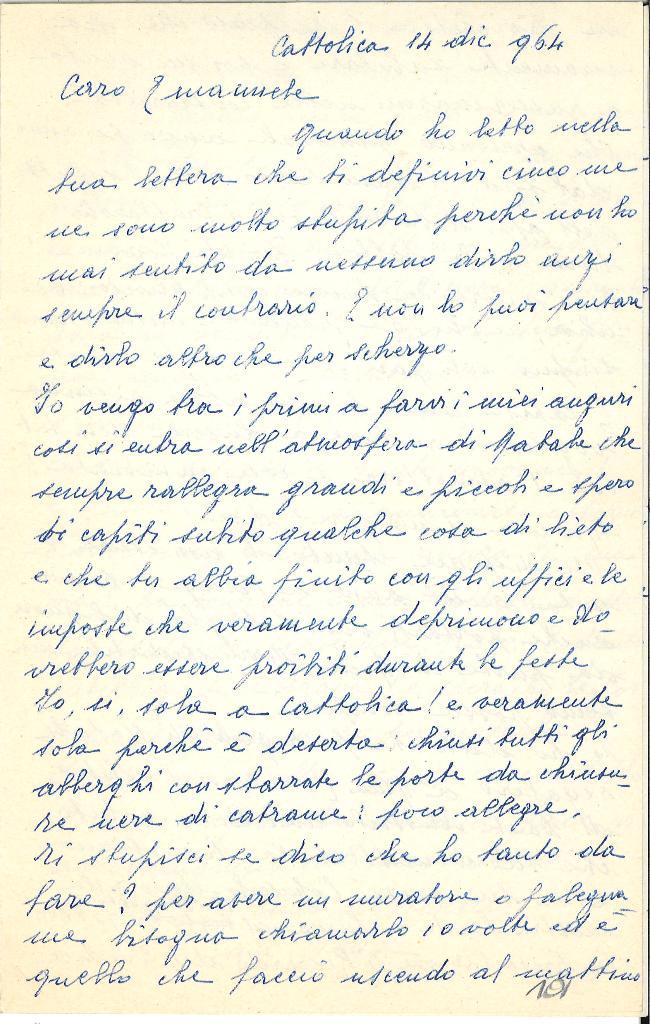 Cattolica 14 dic 964
Caro Emanuele
quando ho letto nella
tua lettera che ti definivi cinco me
ne sono molto stupita perchè non ho
mai sentito da nessuno dirlo anzi
sempre il contrario. E non lo puoi pensare
e dirlo altro che per scherzo.
Io vengo tra i primi a farvi i miei auguri
così si entra nell'atmosfera di Natale che
sempre rallegra grandi e piccoli e spero
ti capiti subito qualche cosa di lieto
e che tu abbia finito con gli uffici e le
imposte che veramente deprimono e do-
vrebbero essere proibiti durante le feste
Io, si, sola a Cattolica! e veramente
sola perchè è deserta: chiusi tutti gli
alberghi con sbarrate le porte da chiusu-
re nere di catrame: poco allegre.
Ti stupisci se dico che ho tanto da
fare? per avere un muratore o falegna-
me bisogna chiamarlo 10 volte ed è
quello che faccio uscendo al mattino
101